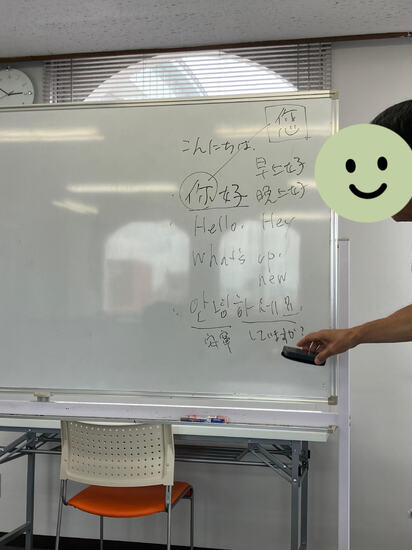 您
こんにちは.
早上好
你好 晚上好
Hello. Hey
What's up.
new
안녕하세요.
安寧 していますか?